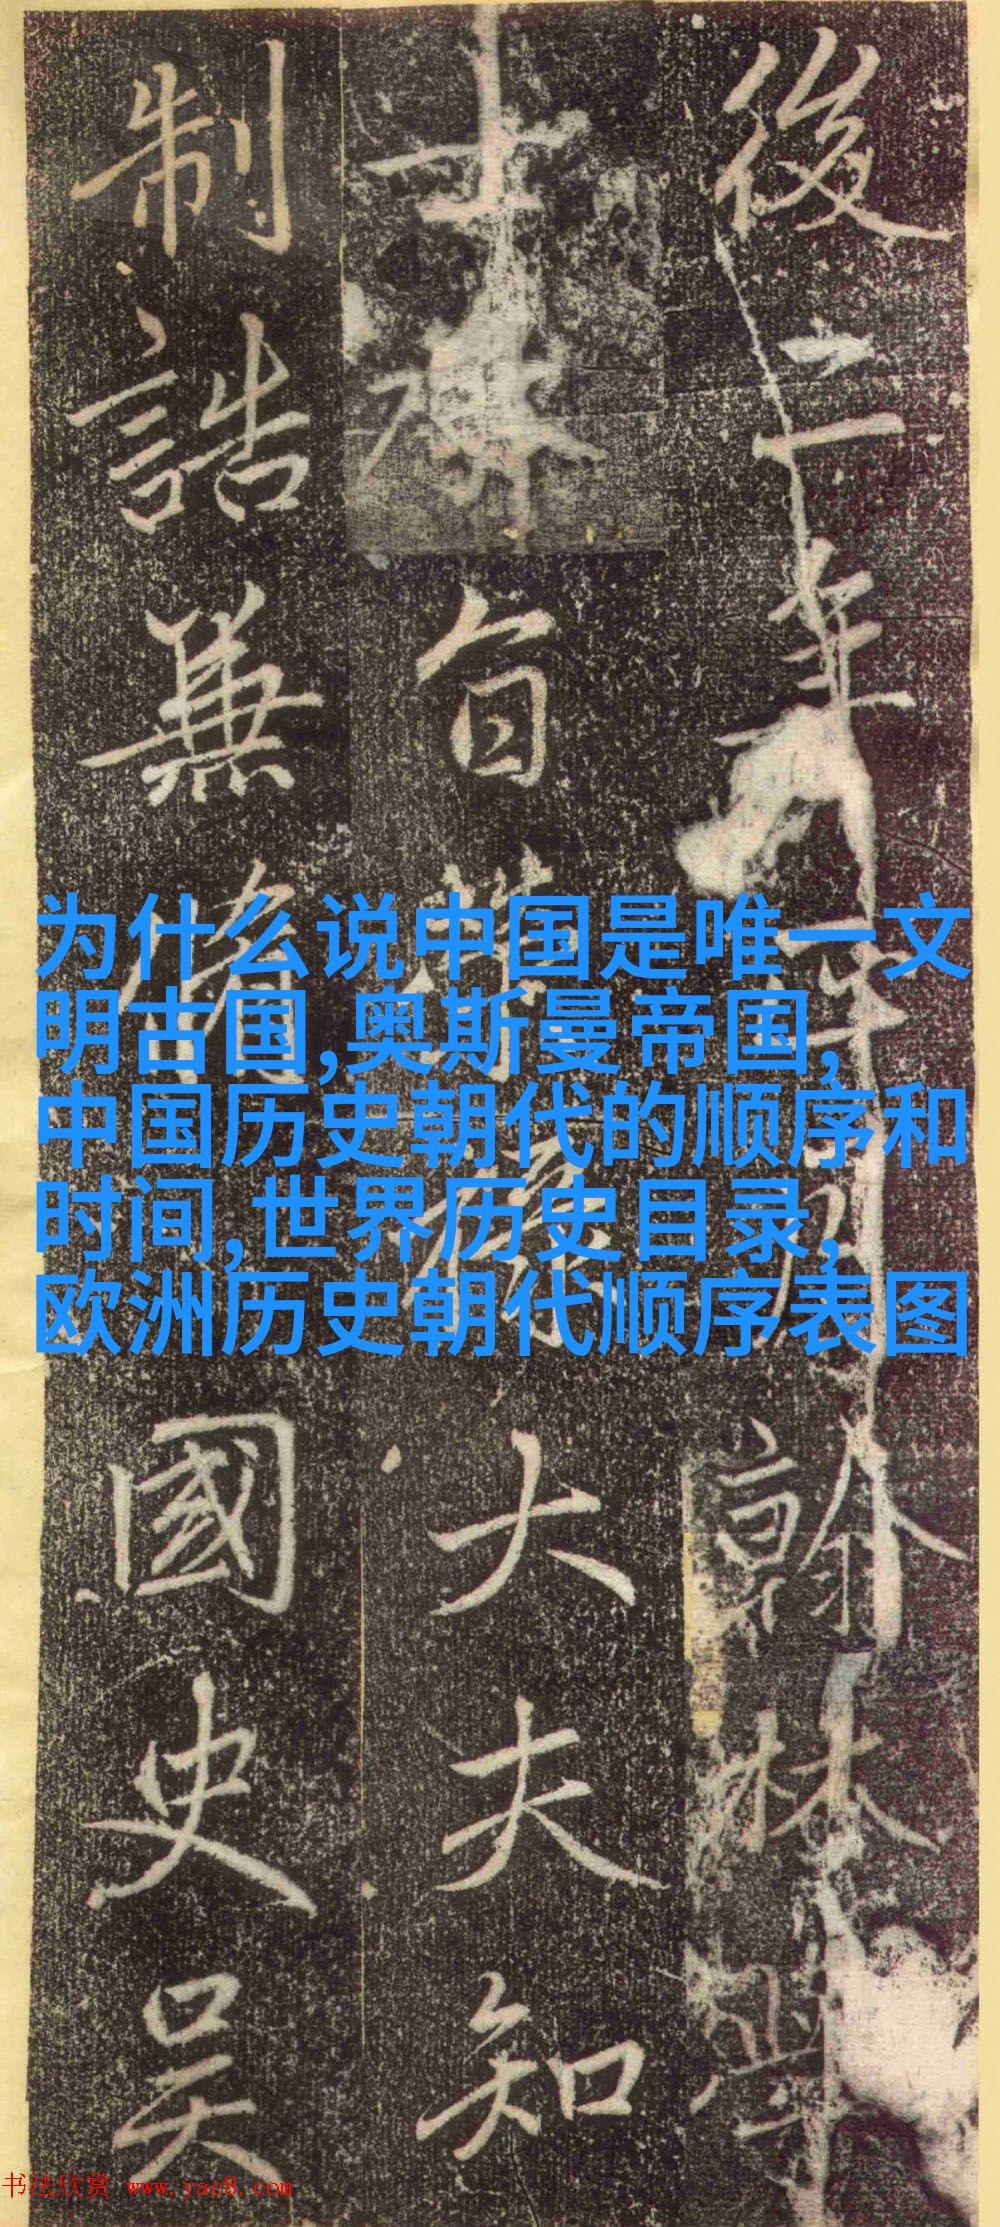 後二年 翰林學
士承旨榮祿大夫知
制誥兼修國史吴
为什么说中国是唯一文
明古国,奥斯曼帝国,
中国历史朝代的顺序和
时间,世界历史目录,
欧洲历史朝代顺序表图
书法欣赏 www.yac8.com